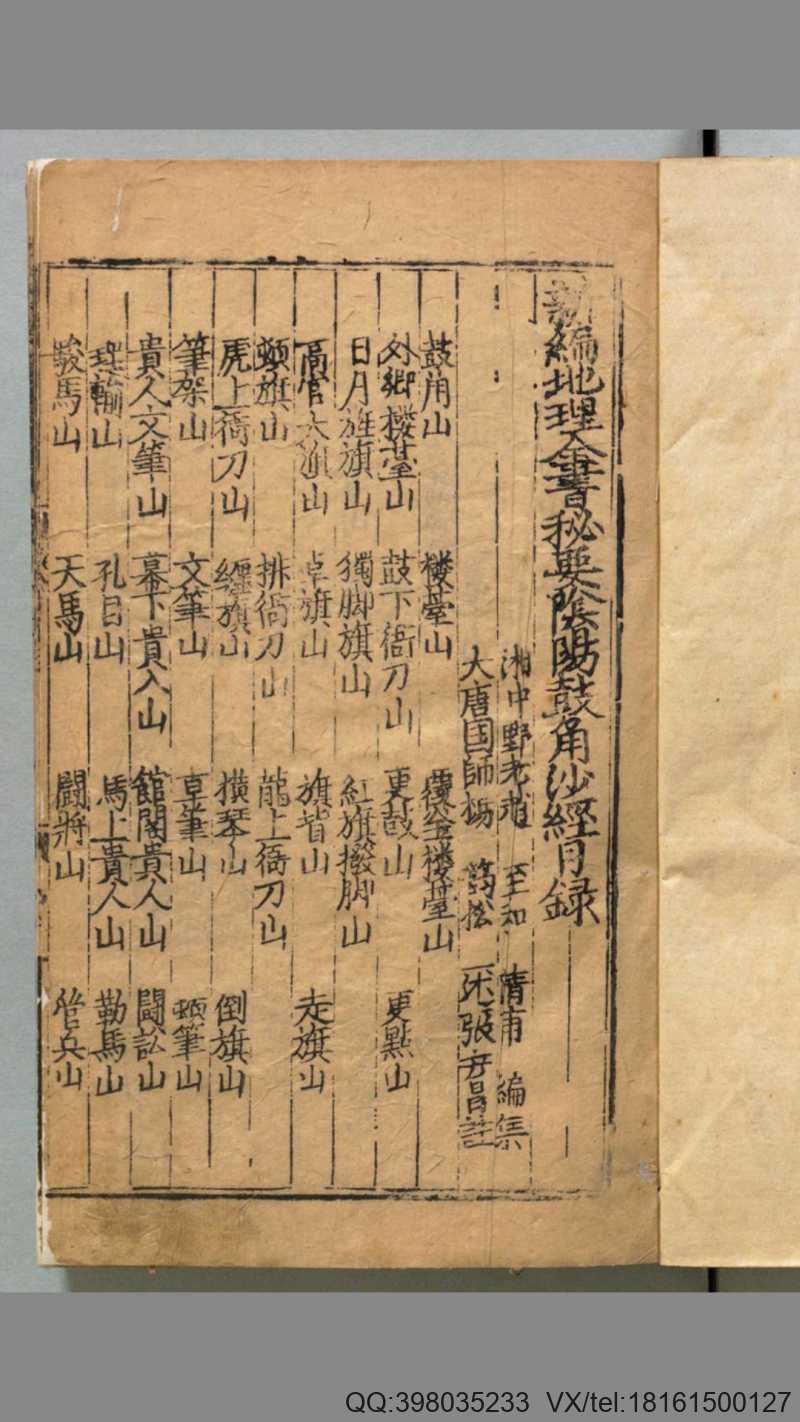 新編地理全書秘要陰陽鼓角沙經目録
湘中野老趙 至和 清甫 編集
大唐国師楊 筠松 張 註
鼓角山 楼䑓山 覆金楼䑓山
外鄉楼䑓山 鼓下衙刀山 更鼓山 更點山
日月旌旗山 獨脚旗山 紅旗撥脚山
高官大旗山 卓旗山 旗山 走旗山
頓旗山 排衙刀山 龍上衙刀山
虎上衙刀山 纒旗山 横琴山 倒旗山
筆架山 文筆山 卓筆山 頓筆山
貴人文筆山 幕下貴人山 館閣貴人山 鬪訟山
山 孔目山 馬上貴人山 勒馬山
駿馬山 天馬山 鬪將山 管兵山
QQ:398035233 VX/tel:18161500127